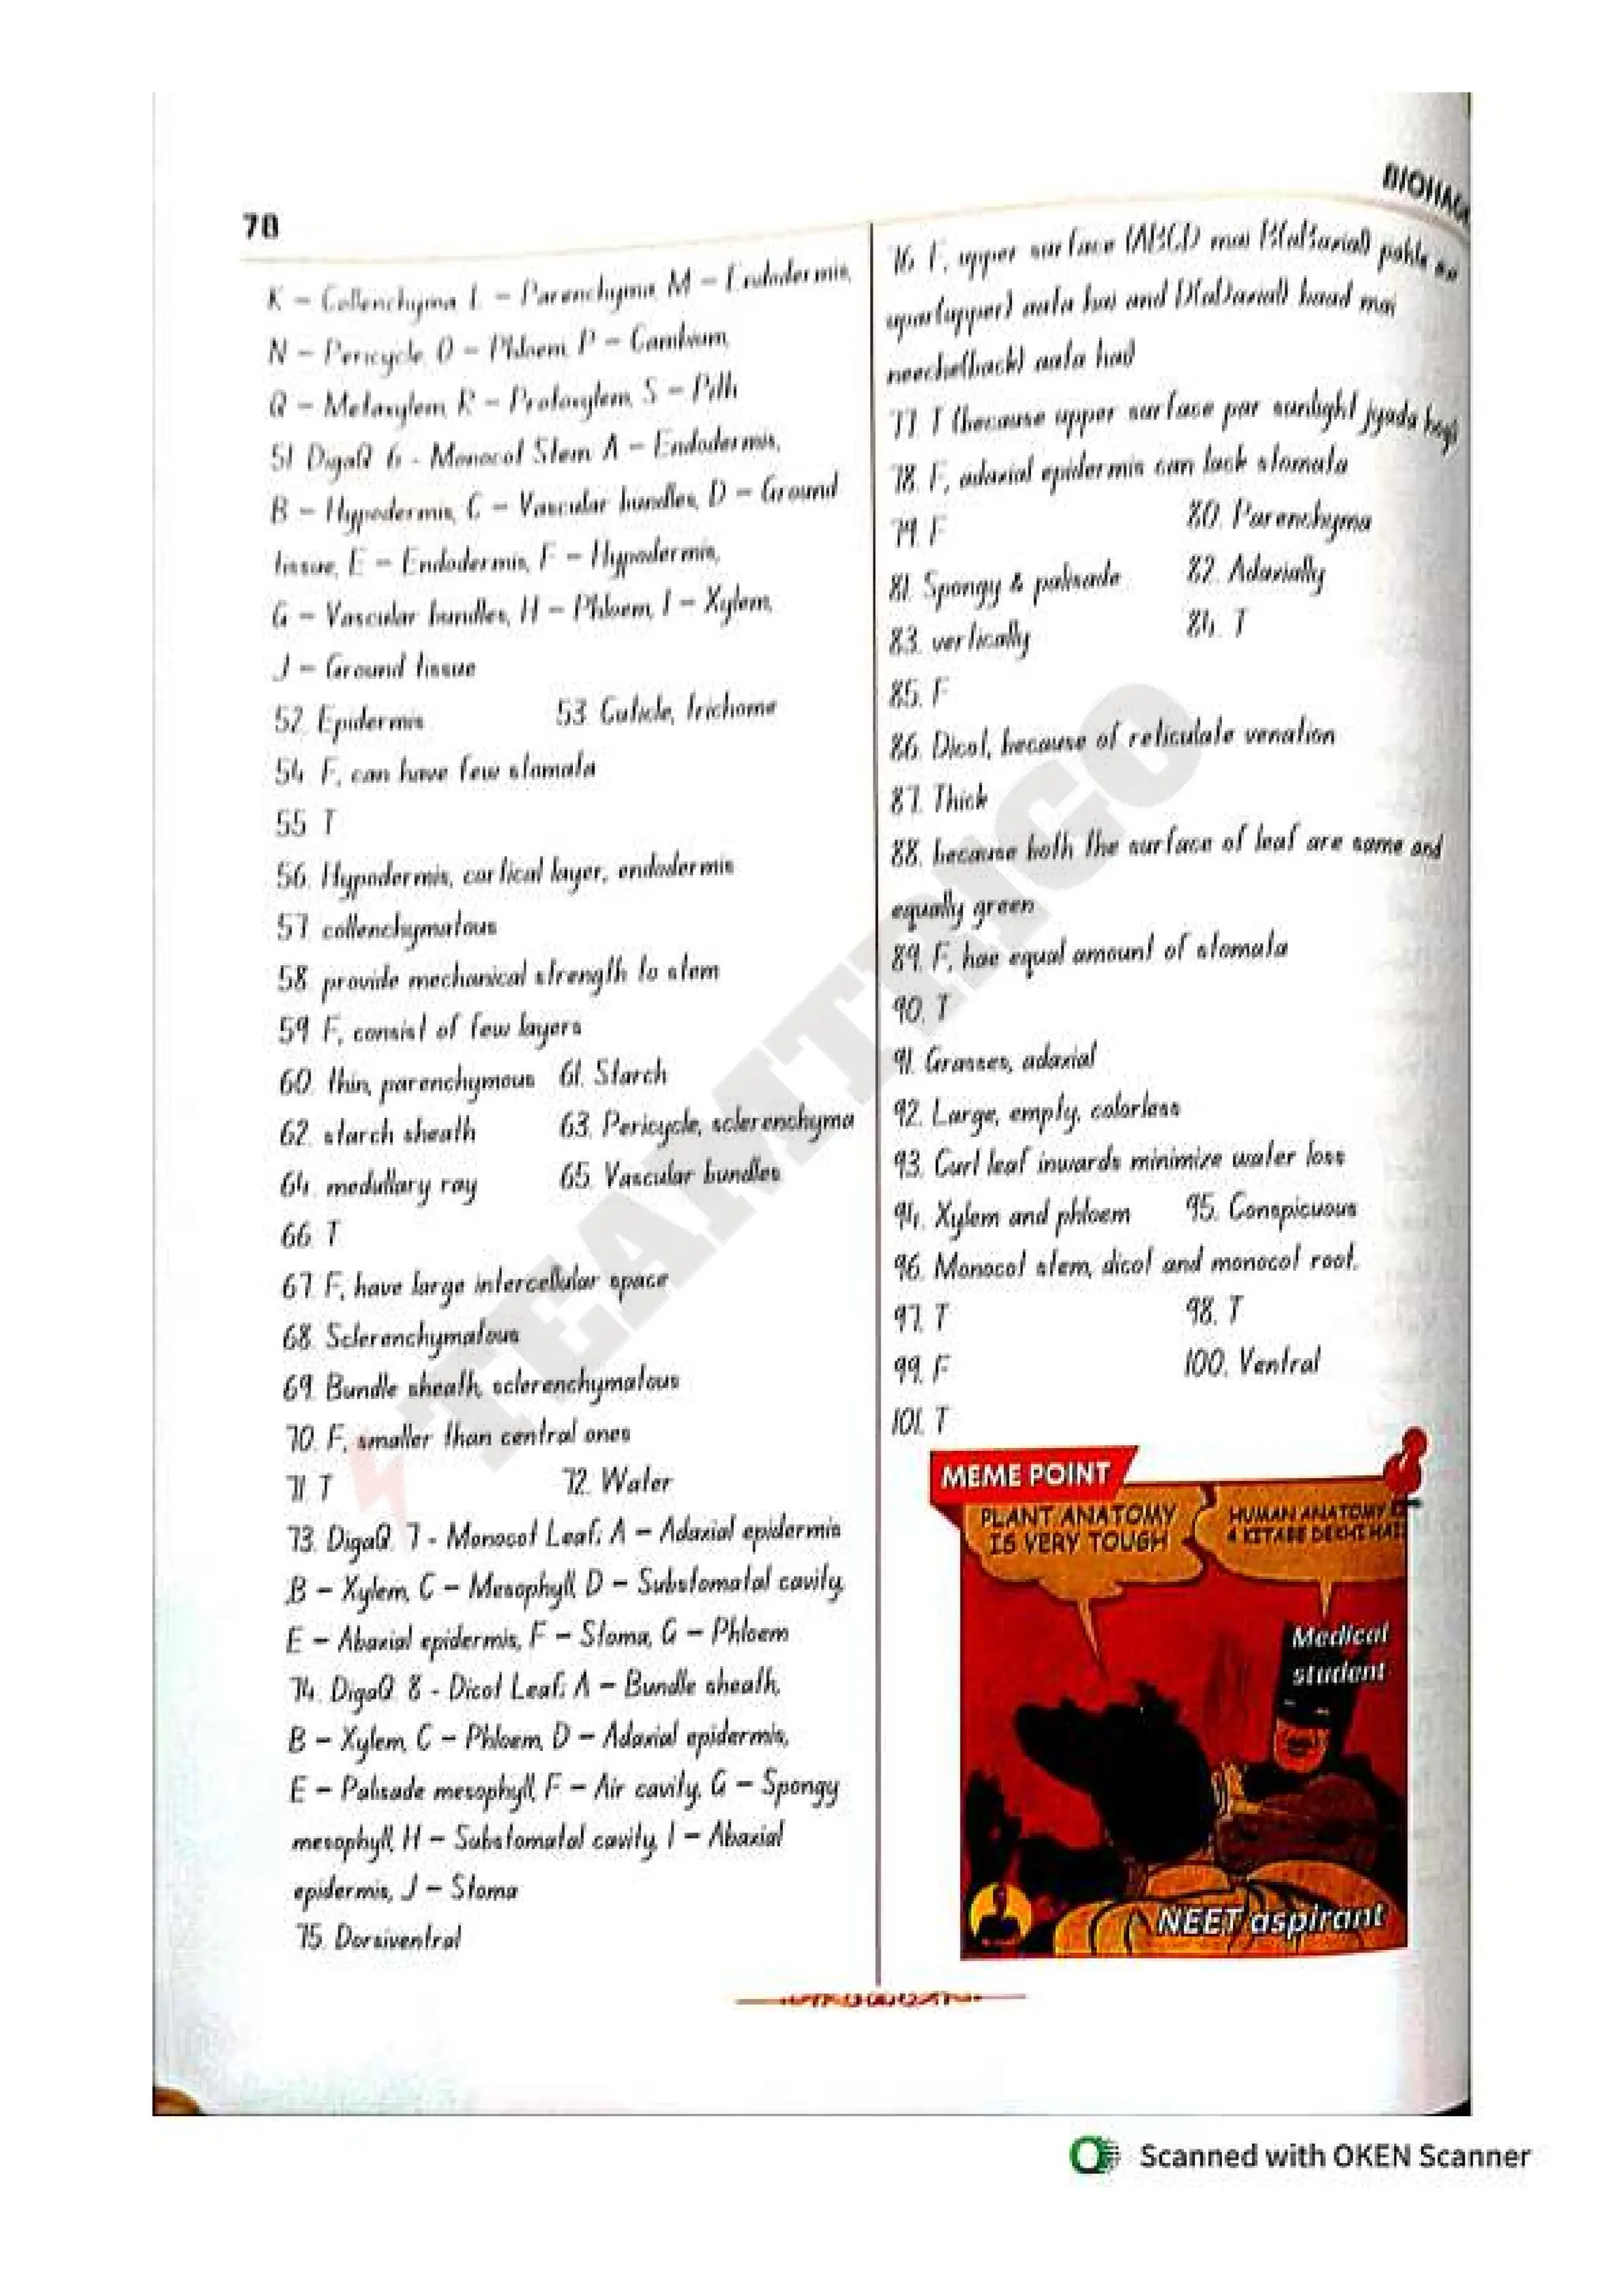 78
BIOHAC
K – Collenchyma, L – Parenchyma, M – Endodermis,
N – Pericycle, O – Phloem, P – Cambium,
Q – Metaxylem, R – Protoxylem, S – Pith
51. DigaQ. 6 - Monocot Stem: A – Endodermis,
B – Hypodermis, C – Vascular bundles, D – Ground
tissue, E – Endodermis, F – Hypodermis,
G – Vascular bundles, H – Phloem, I – Xylem,
J – Ground tissue
52. Epidermis 53. Cuticle, trichome
54. F, can have few stomata
55. T
56. Hypodermis, cortical layer, endodermis
57. collenchymatous
58. provide mechanical strength to stem
59. F, consist of few layers
60. thin, parenchymous 61. Starch
62. starch sheath 63. Pericycle, sclerenchyma
64. medullary ray 65. Vascular bundles
66. T
67. F, have large intercellular space
68. Sclerenchymatous
69. Bundle sheath, sclerenchymatous
70. F, smaller than central ones
71. T 72. Water
73. DigaQ. 7 - Monocot Leaf: A – Adaxial epidermis
B – Xylem, C – Mesophyll, D – Substomatal cavity,
E – Abaxial epidermis, F – Stoma, G – Phloem
74. DigaQ. 8 - Dicot Leaf: A – Bundle sheath,
B – Xylem, C – Phloem, D – Adaxial epidermis,
E – Palisade mesophyll, F – Air cavity, G – Spongy
mesophyll, H – Substomatal cavity, I – Abaxial
epidermis, J – Stoma
75. Dorsiventral
76. F, upper surface (ABCD mai B(aBaxial) pahle so
upar(upper) aala hai and D(aDaxial) baad mai
neeche(back) aala hai)
77. T (because upper surface par sunlight jyada hogi)
78. F, adaxial epidermis can lack stomata
79. F 80. Parenchyma
81. Spongy & palisade 82. Adaxially
83. vertically 84. T
85. F
86. Dicot, because of reticulate venation
87. Thick
88. because both the surface of leaf are same and
equally green
89. F, hae equal amount of stomata
90. T
91. Grasses, adaxial
92. Large, empty, colorless
93. Curl leaf inwards minimize water loss
94. Xylem and phloem 95. Conspicuous
96. Monocot stem, dicot and monocot root.
97. T 98. T
99. F 100. Ventral
101. T
MEME POINT
PLANT ANATOMY
IS VERY TOUGH
HUMAN ANATOMY
4 KITABE DEKHI HAI
Medical
student
NEET aspirant
TEAMTRGO
Scanned with OKEN Scanner